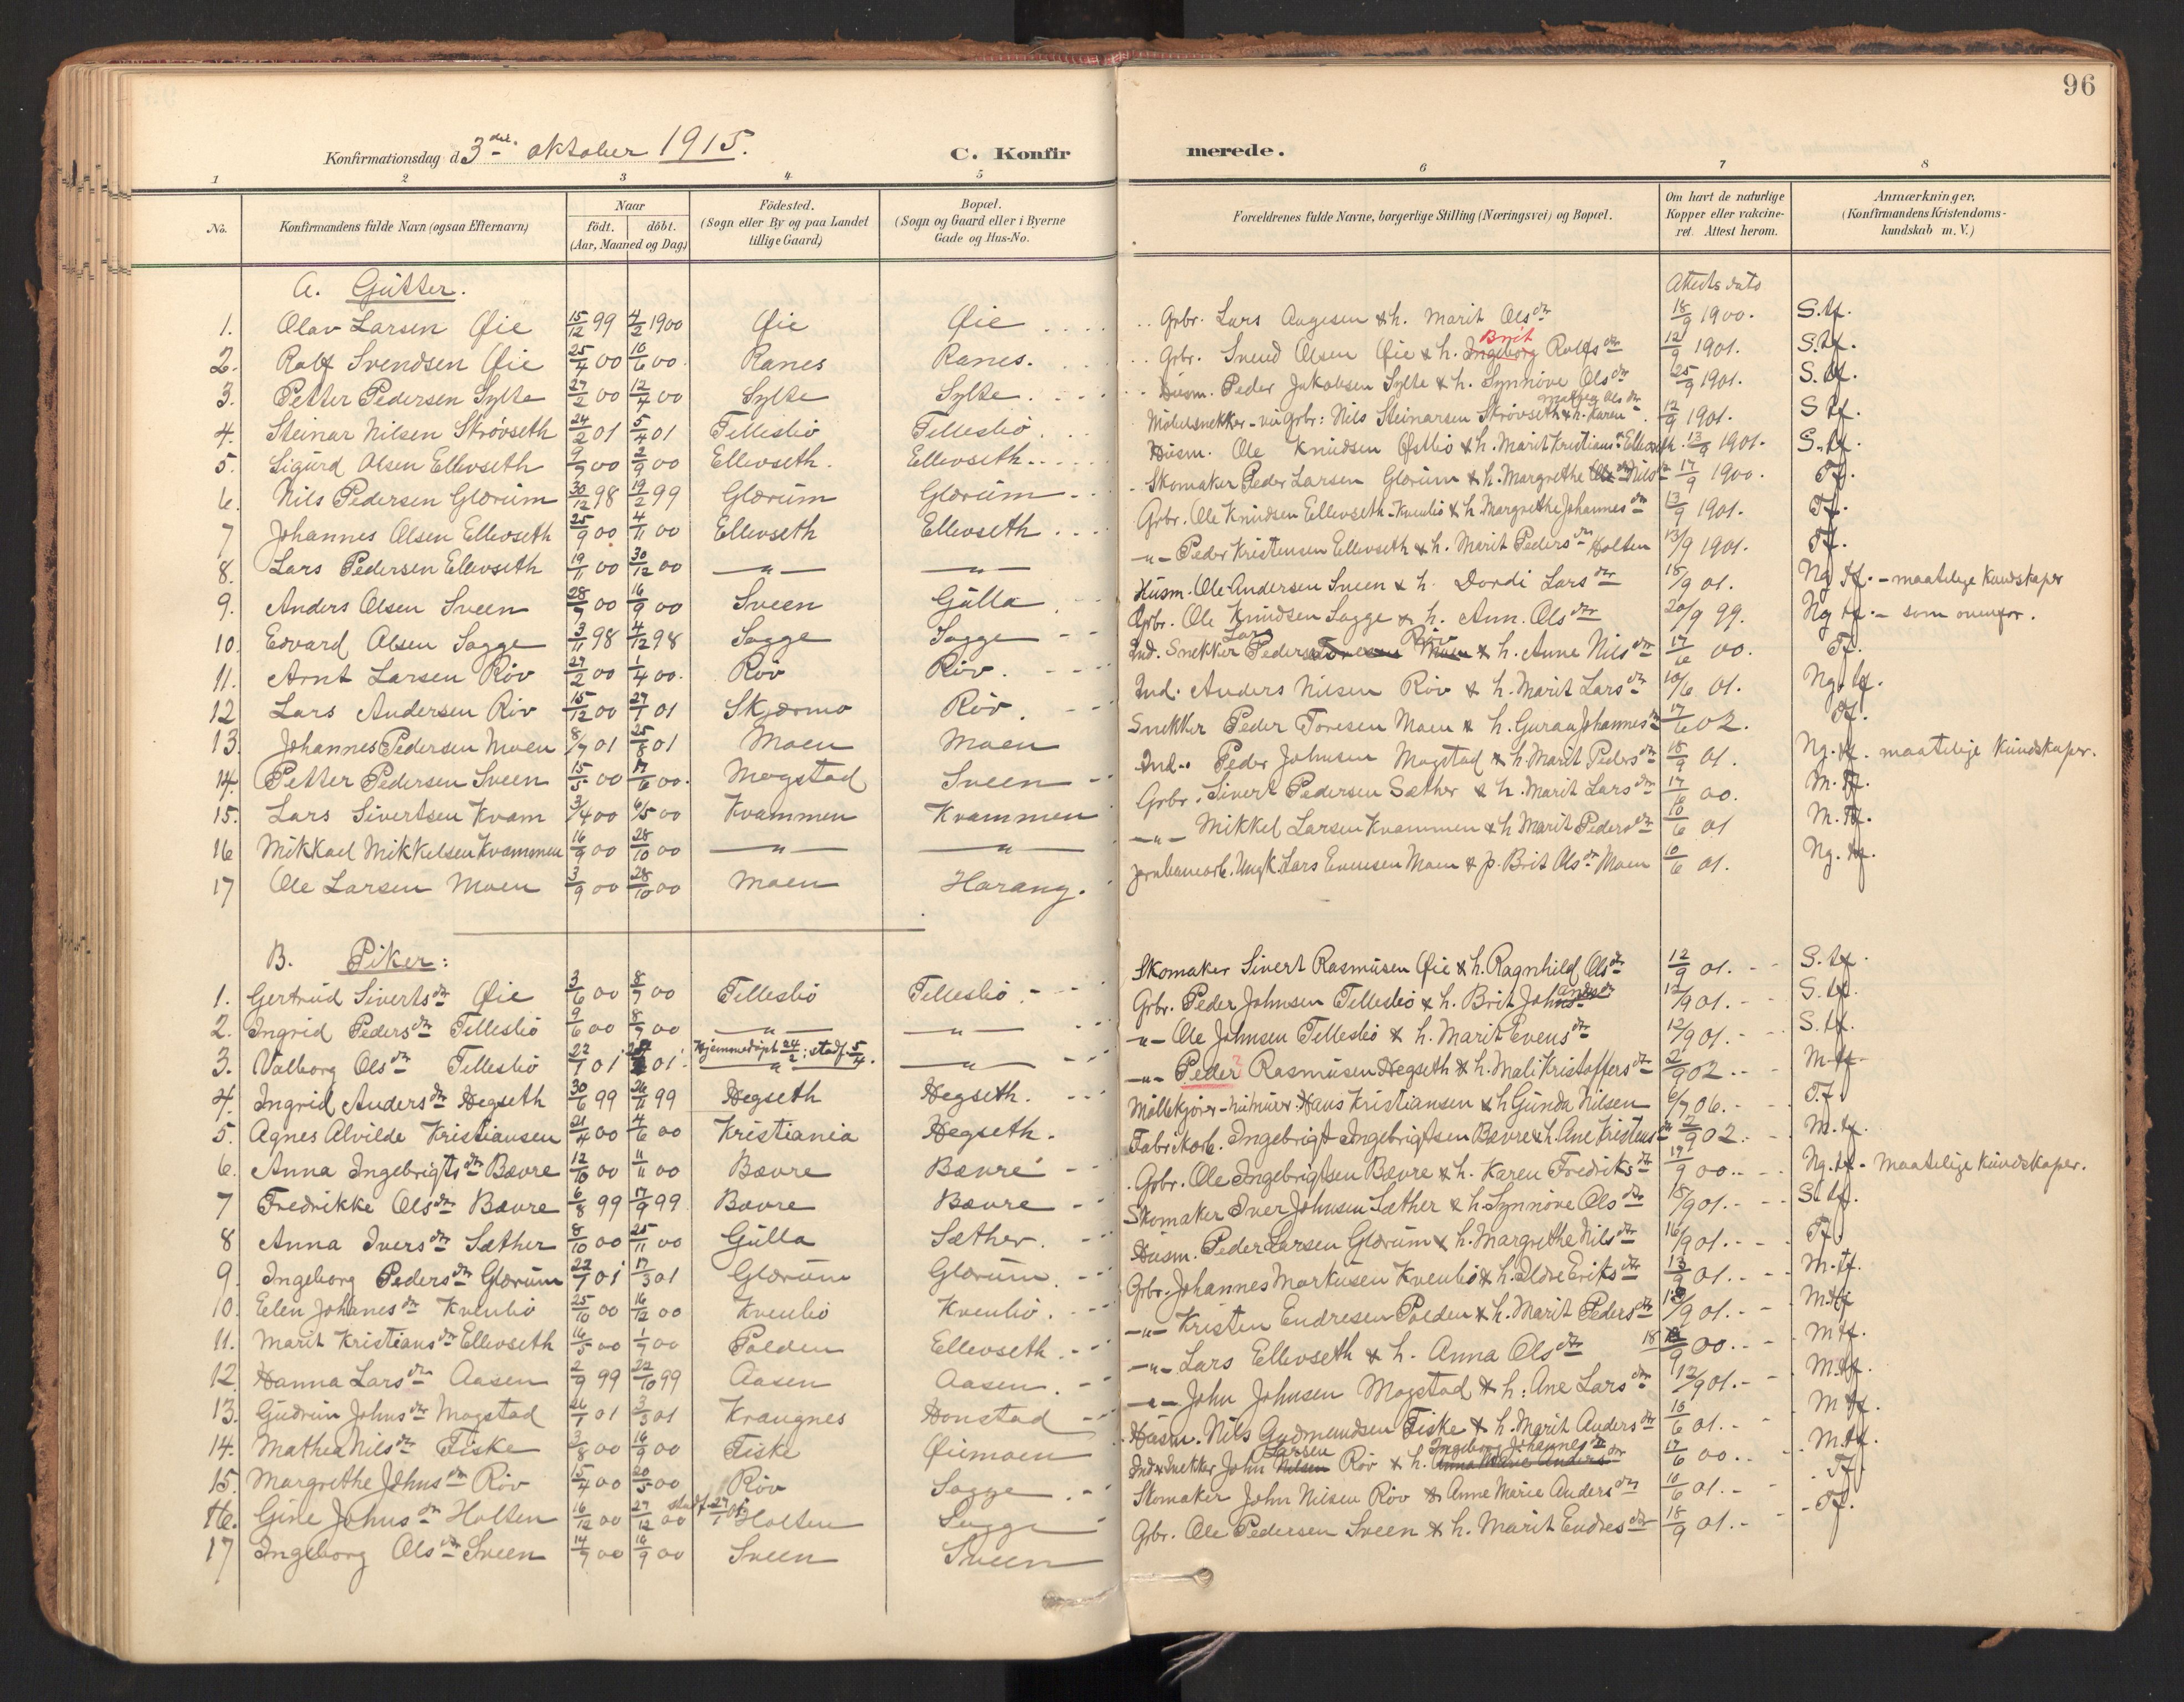 96
Konfirmationsdag d. 3die oktober 1915.
C. Konfirmerede.
1 2 3 4 5 6 7 8
No. Konfirmandens fulde Navn (ogsaa Efternavn) Naar födt. döbt. (Aar, Maaned og Dag) Födested. (Sogn eller By og paa Landet tillige Gaard) Bopæl. (Sogn og Gaard eller i Byerne Gade og Hus-No. Forældrenes fulde Navne, borgerlige Stilling (Næringsvei) og Bopæl. Om havt de naturlige Kopper eller vakcineret. Attest herom. Anmærkninger, (Konfirmandens Kristendomskundskab m. V.)
A. Gutter. Attests dato
1. Olav Larsen Øie 15/12 99 4/2 1900 Øie Øie Grbr. Lars Aagesen & h. Marit Olsdtr 18/9 1900. S.tf.
2. Rolf Svendsen Øie 25/4 00 10/6 00. Ranes Ranes. Grbr. Svend Olsen Øie & h. Ingeborg Brit Rolfsdtr 12/9 1901. S.tf.
3. Petter Pedersen Sylte 27/2 00 12/4 00 Sylte Sylte. Husm. Peder Jakobsen Sylte & h. Synnöve Olsdtr 25/9 1901. S.tf.
4. Steinar Nilsen Skrövseth 24/2 01 5/4 01 Tellesbö Tellesbö. Möbelsnekker - Nils Steinarsen Skrövseth & h. Karen Olsdtr 12/9 1901. S tf.
5. Sigurd Olsen Ellevseth 9/7 00 2/9 00 Ellevseth. Ellevseth. Husm. Ole Knudsen Østbö & h. Marit Kristiansdtr Ellevseth 13/9 1901. S.tf.
6. Nils Pedersen Glærum 30/12 98 19/2 99 Glærum Glærum Skomaker Peder Larsen Glærum & h. Margrethe Nilsdtr 17/9 1900. Tf.
7 Johannes Olsen Ellevseth 25/9 00 4/11 00 Ellevseth Ellevseth Grbr. Ole Knudsen Ellevseth-Kvenbö & h. Margrethe Johannesdtr 13/9 1901. Tf.
8. Lars Pedersen Ellevseth 19/11 00 30/12 00 —"— —"— -"- Peder Kristensen Ellevseth & h. Marit Pedersdtr Holten 13/9 1901. Tf.
9. Anders Olsen Sveen 28/7 00 16/9 00 Sveen Gulla. Husm. Ole Andersen Sveen & h. Dordi Larsdtr 18/9 01. Ng tf. - maatelige kundskaper
10. Edvard Olsen Sagge 3/11 98 4/12 98 Sagge Sagge Grbr. Ole Knudsen Sagge & h. Ann. Olsdtr 20/9 99. Ng tf. - som ovenfor.
11. Arnt Larsen Röv 27/2 00 1/4 00. Röv Röv. Ind. Snekker Lars Pedersen Röv & h. Anne Nilsdtr 17/6 00. Tf.
12 Lars Andersen Röv 15/12 00 27/1 01 Skjærmo Röv. Ind. Anders Nilsen Röv & h. Marit Larsdtr 10/6 01. Ng. tf.
13. Johannes Pedersen Moen 8/7 01 25/8 01 Moen Moen Snekker Peder Toresen Moen & h. Guraa Johannesdtr 17/6 02. Tf.
14. Petter Pedersen Sveen 15/5 00 17/6 00. Mogstad Sveen Ind. Peder Johnsen Mogstad & h. Marit Pedersdtr 18/9 01. Ng. tf. maatelige kundskaper.
15. Lars Sivertsen Kvam 3/4 00 6/5 00 Kvammen Kvammen Grbr. Sivert Pedersen Sæther & h. Marit Larsdtr 17/6 00. M. tf.
16 Mikkael Mikkelsen Kvammen 16/9 00 28/10 00 —"— —"— —"— Mikkel Larsen Kvammen & h Marit Pedersdtr 10/6 01 M. tf.
17 Ole Larsen Moen 3/9 00 28/10 00 Moen Harang. Jernbanearb. Ungk. Lars Evensen Moen & p. Brit Olsdtr Moen 10/6 01. Ng. tf.
B. Piker:
1. Gertrud Sivertsdtr Øie 3/6 00 8/7 00 Tellesbö Tellesbö. Skomaker Sivert Rasmusen Øie & h. Ragnhild Olsdtr 12/9 01. S. tf.
2. Ingrid Pedersdtr Tellesbö 9/6 00 8/7 00 —"— —"— Grbr. Peder Johnsen Tellesbö & h. Brit Johansdtr 12/9 01. S. tf.
3. Valborg Olsdtr Tellesbö 22/1 01 01. Hjemmedöpt 24/2; stadf. 5/4. —"— —"— -"- Ole Johnsen Tellesbö & h. Marit Evensdtr 12/9 01. S. tf.
4. Ingrid Andersdtr Hegseth 30/6 99 26/11 99 Hegseth Hegseth. —"— Peder? Rasmusen Hegseth & h. Mali Kristoffersdtr 2/9 02. M tf
5. Agnes Alvilde Kristiansen 21/4 00 4/6 00 Kristiania Hegseth. Möllekjörer Hans Kristiansen & h Gunda Nilsen 6/7 06. T.f.
6. Anna Ingebrigtsdtr Bævre 12/10 00 11/11 00 Bævre Bævre Fabrikarb. Ingebrigt Ingebrigtsen Bævre & h. Ane Kristensdtr 2/9 02. M. tf.
7 Fredrikke Olsdtr Bævre 6/8 99 17/9 99 Bævre Bævre Grbr. Ole Ingebrigtsen Bævre & h. Karen Fredriksdtr 19/9 00. Ng. tf - maatelige kundskaper.
8 Anna Iversdtr Sæther 8/10 00 25/11 00 Gulla Sæther. Skomaker Iver Johnsen Sæther & h. Synnöve Olsdtr 18/9 01. S. tf.
9. Ingeborg Pedersdtr Glærum 22/1 01 17/3 01 Glærum Glærum. Husm. Peder Larsen Glærum & h. Margrethe Nilsdtr 16/9 01. Tf.
10. Eelen Johanesdtr Kvenbö 25/10 00 16/12 00 Kvenbö Kvenbö. Grbr. Johannes Markusen Kvenbö & h. Ildre Eriksdtr 13/9 01. M. tf.
11. Marit Kristiansdtr Ellevseth 16/5 00 1/7 00 Polden Ellevseth. —"— Kristen Endresen Polden & h. Marit Pedersdtr /9 01. M tf
12. Hanna Larsdtr Aasen 2/9 99 22/10 99 Aasen Aasen. —"— Lars Ellevseth & h. Anna Olsdtr 18/9 00. M tf.
13. Gudrun Johnsdtr Mogstad 26/1 01 3/3 01 Krangnes Honstad —"— John Johnsen Mogstad & h: Ane Larsdtr 12/9 01. M. tf.
14. Mathea Nilsdtr Fiske 3/8 00 16/9 00 Fiske Øiemoen Husm. Nils Gudmundsen Fiske & h. Marit Andersdtr 10/6 01. M tf.
15. Margrethe Johnsdtr Röv 15/4 00 20/5 00 Röv Sagge. Ind. Snekker John Nilsen Larsen Röv & h. Anna Marie Anders Ingeborg Johannesdtr 17/6 00. M. tf.
16. Gine Johnsdtr Holten 16/12 00 27/12 00 stadf. 27/1 01 Holten Sagge Skomaker John Nilsen Röv & Anne Marie Andersdtr 10/6 01. Tf.
17 Ingeborg Olsdtr Sveen 14/7 00 16/9 00 Sveen Sveen Grbr. Ole Pedersen Sveen & h. Marit Endresdtr 18/9 01. Tf.